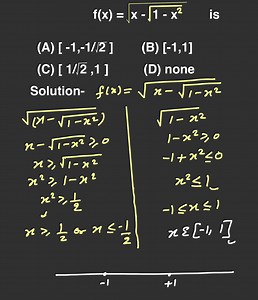 f(x) = √x - √1 - x² is
(A) [ -1,-1/√2 ] (B) [-1,1]
(C) [ 1/√2 ,1 ] (D) none
Solution- f(x) = √x - √1-x²
√(x - √1-x²)
x - √1-x² ⩾ 0
x ⩾ √1-x²
x² ⩾ 1-x²
x² ⩾ 1/2
x ⩾ 1/2 or x ≤ -1/2
√1-x²
1-x² ⩾ 0
-1+x² ≤ 0
x² ≤ 1
-1 ≤ x ≤ 1
x ε [-1, 1]
-1 +1